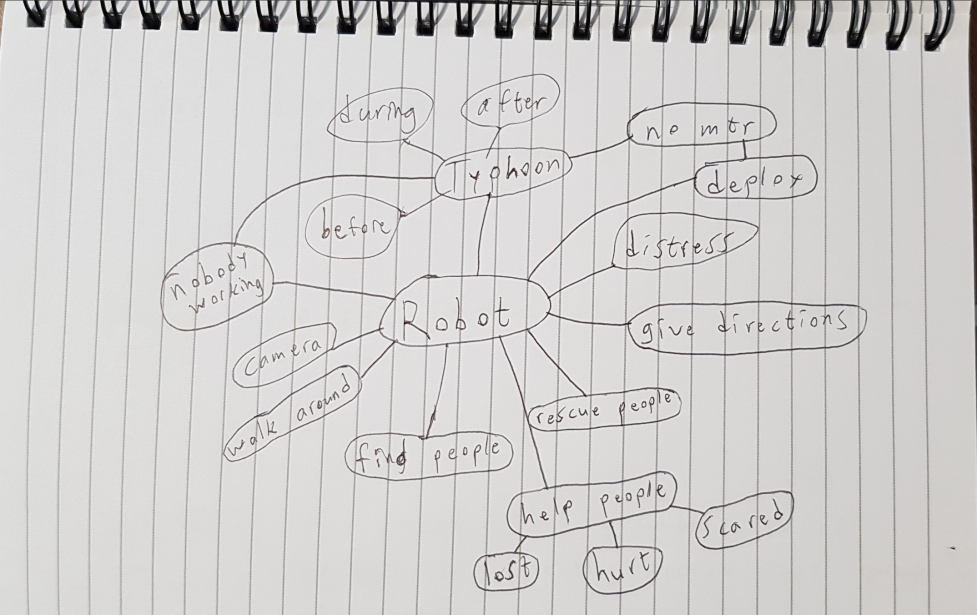 during
after
no mtr
Typhoon
deploy
before
distress
nobody
working
Robot
give directions
camera
walk around
rescue people
find people
help people
scared
lost
hurt